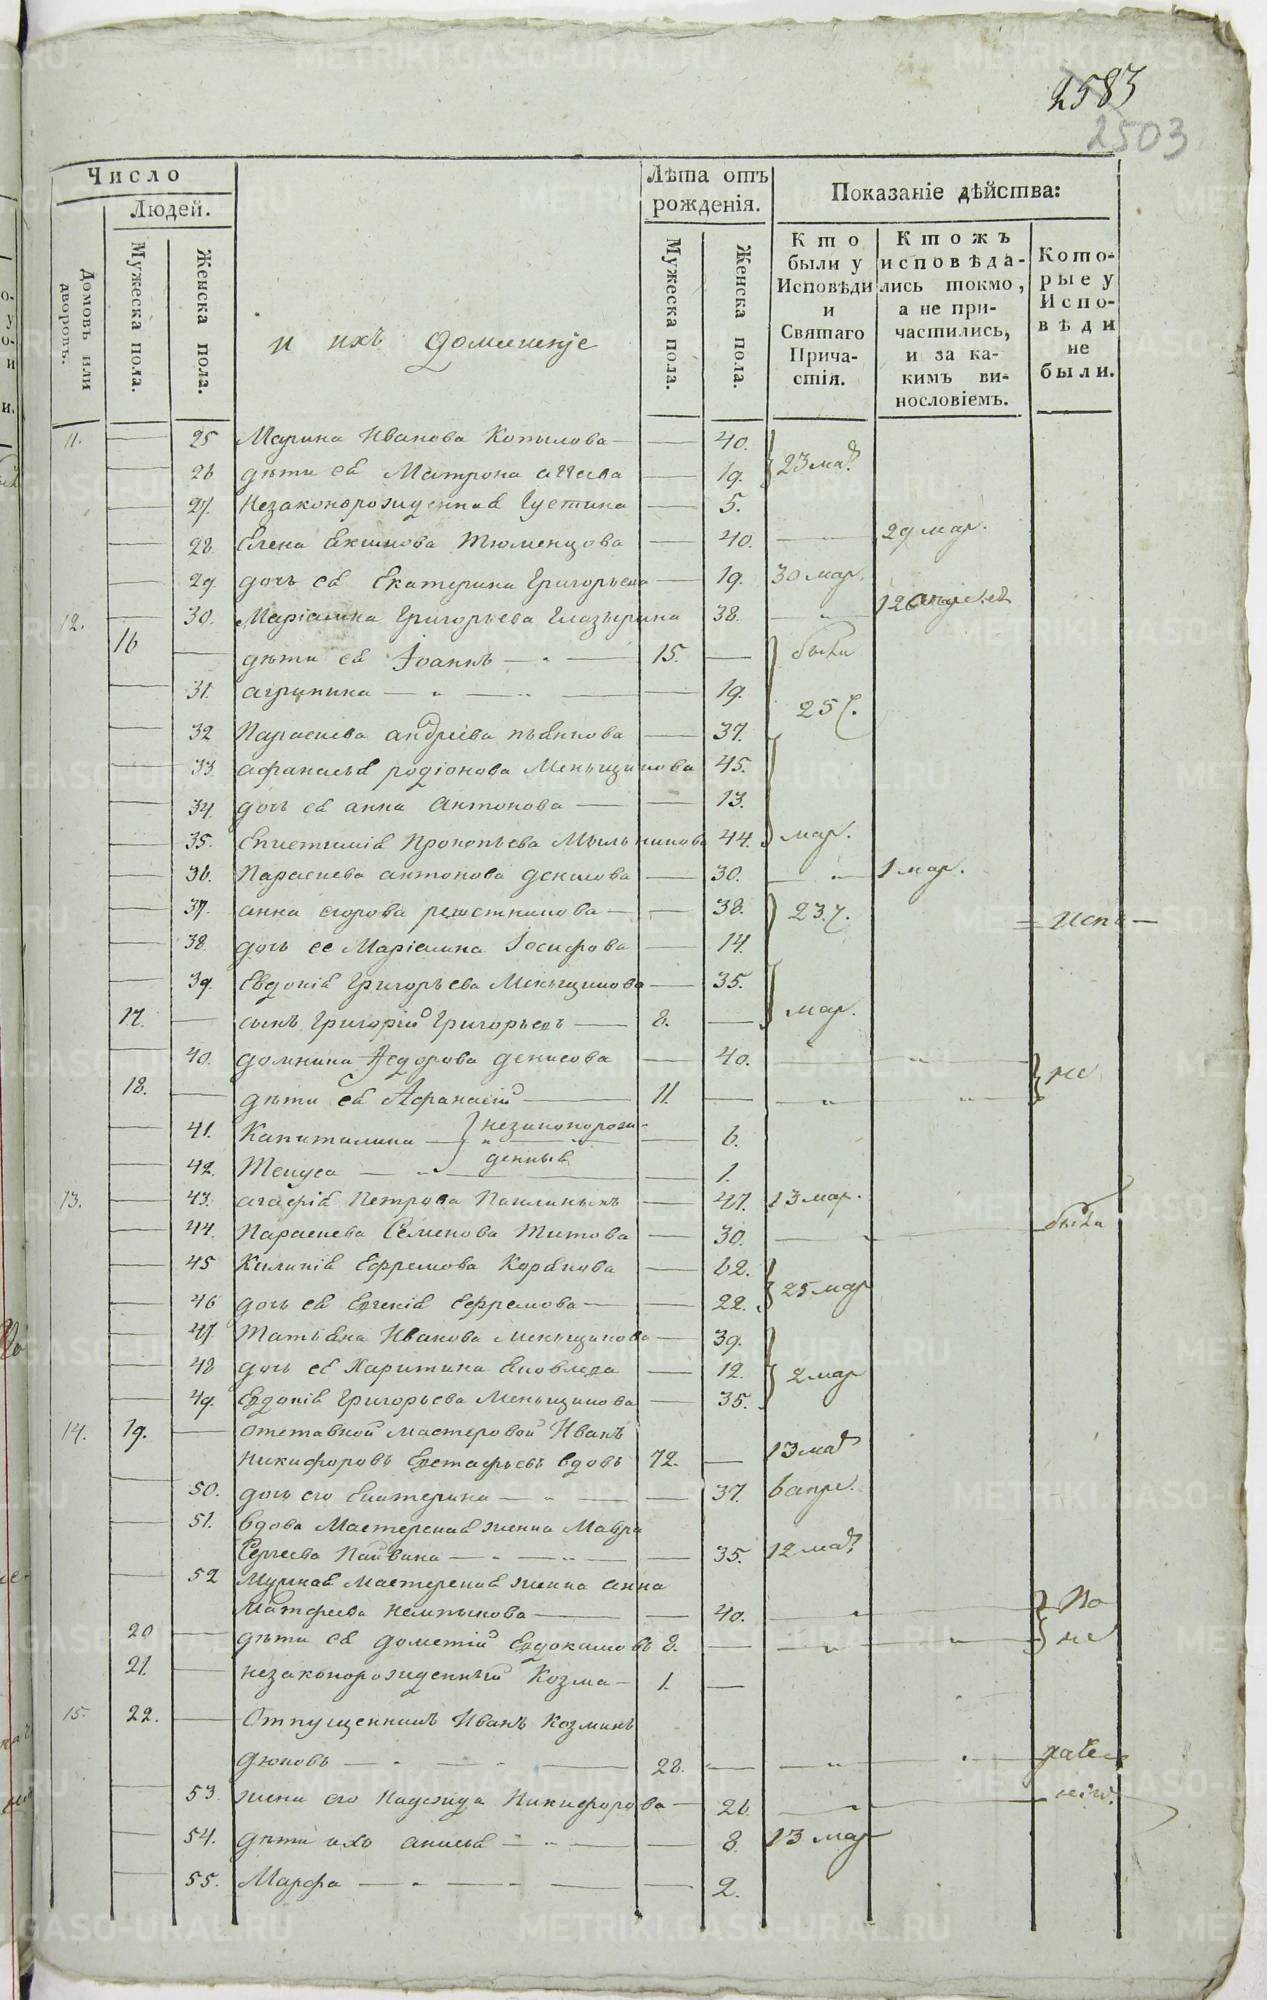 2583
2503
Число
Людей.
Домовъ или дворовъ.
Мужеска пола.
Женска пола.
и ихъ домашніе
Лѣта отъ рожденія.
Мужеска пола.
Женска пола.
Показаніе дѣйства:
Кто были у Исповѣди и Святаго Причастія.
Ктожъ исповѣдались токмо, а не причастились, и за какимъ винословіемъ.
Которые у Исповѣди не были.
11. 25 Марина Иванова Копылова 40.
26 дѣти ея Матрона 19. 23 мар.
27. Незаконорожденная Густина 5.
28. Елена Екимова Тюменцова 40. 29 мар.
29. дочь ея Екатерина Григорьева 19. 30 мар.
12. 30. Маріамна Григорьева Глазырина 38. 12 апреля
16 дѣти ея Іоаннъ 15. были
31. агрипина 19. 25 ч.
32 Параскева андреева 37.
33. афанасья родіонова Меньщикова 45.
34. дочь ея анна антонова 13.
35. Епистимія Прокопьева Мыльникова 44. мар.
36. Параскева антонова 30. 1 мар.
37. анна егорова решетникова 38. 23. ч. испо
38. дочь ее Маріамна Іосифова 14.
39. Евдокія Григорьева Меньщикова 35.
17. сынъ Григорій Григорьевъ 8. мар.
40. домнина Федорова денисова 40. не
18. дѣти ея Афанасій 11.
41. Капиталина незаконорож- 6.
денныя
42. 1.
13. 43. агафія Петрова 47. 13 мар.
44. Параскева Семенова Титова 30. были
45 Киликія Ефремова 62.
46 дочь ея Евгенія Ефремова 22. 25 мар
47. Татьяна Иванова Меньщикова 39.
48 дочь ея Харитина Яковлева 12. 2 мар
49. Евдокія Григорьева Меньщикова 35.
14. 19. отставной мастеровой Иванъ
Никифоровъ Евстафьевъ вдовъ 72. 13 мар
50. дочь его Екатерина 37. 6 апре.
51. вдова Мастерская женка Мавра
Сергеева 35. 12 мар
52 Мужняя мастерская женка анна
Матфеева 40. По
20 дѣти ея дометій Евдокимовъ 8. не
21. незаконорожденный Козма 1.
15. 22. Отпущенникъ Иванъ Козминъ
дюковъ 28.
53. жена его Надежда Никифорова 26
54. дѣти ихъ анисья 8. 13 мар
55. Марфа 2.
METRIKI.GASO-URAL.RU